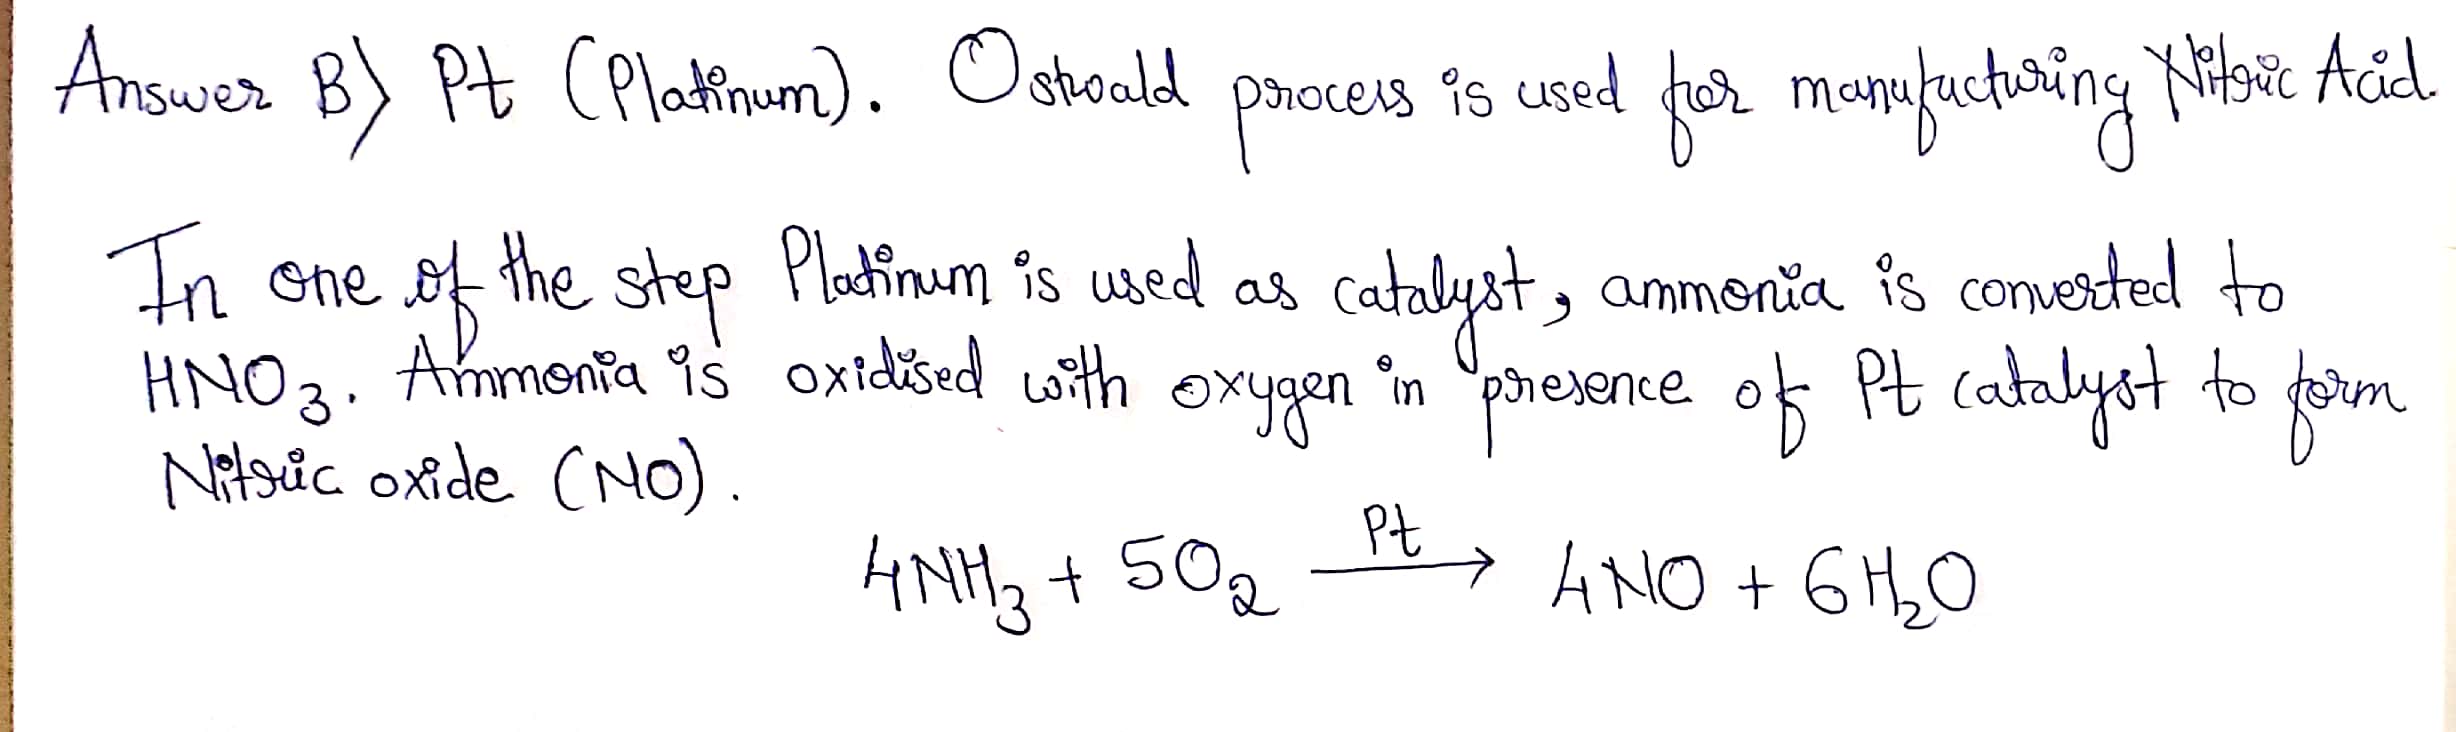 Answer B) Pt (Platinum). Ostwald process is used for manufacturing Nitric Acid.
In one of the step Platinum is used as catalyst, ammonia is converted to
HNO3. Ammonia is oxidised with oxygen in presence of Pt catalyst to form
Nitric oxide (NO).
4NH3 + 5O2 —Pt→ 4NO + 6H2O